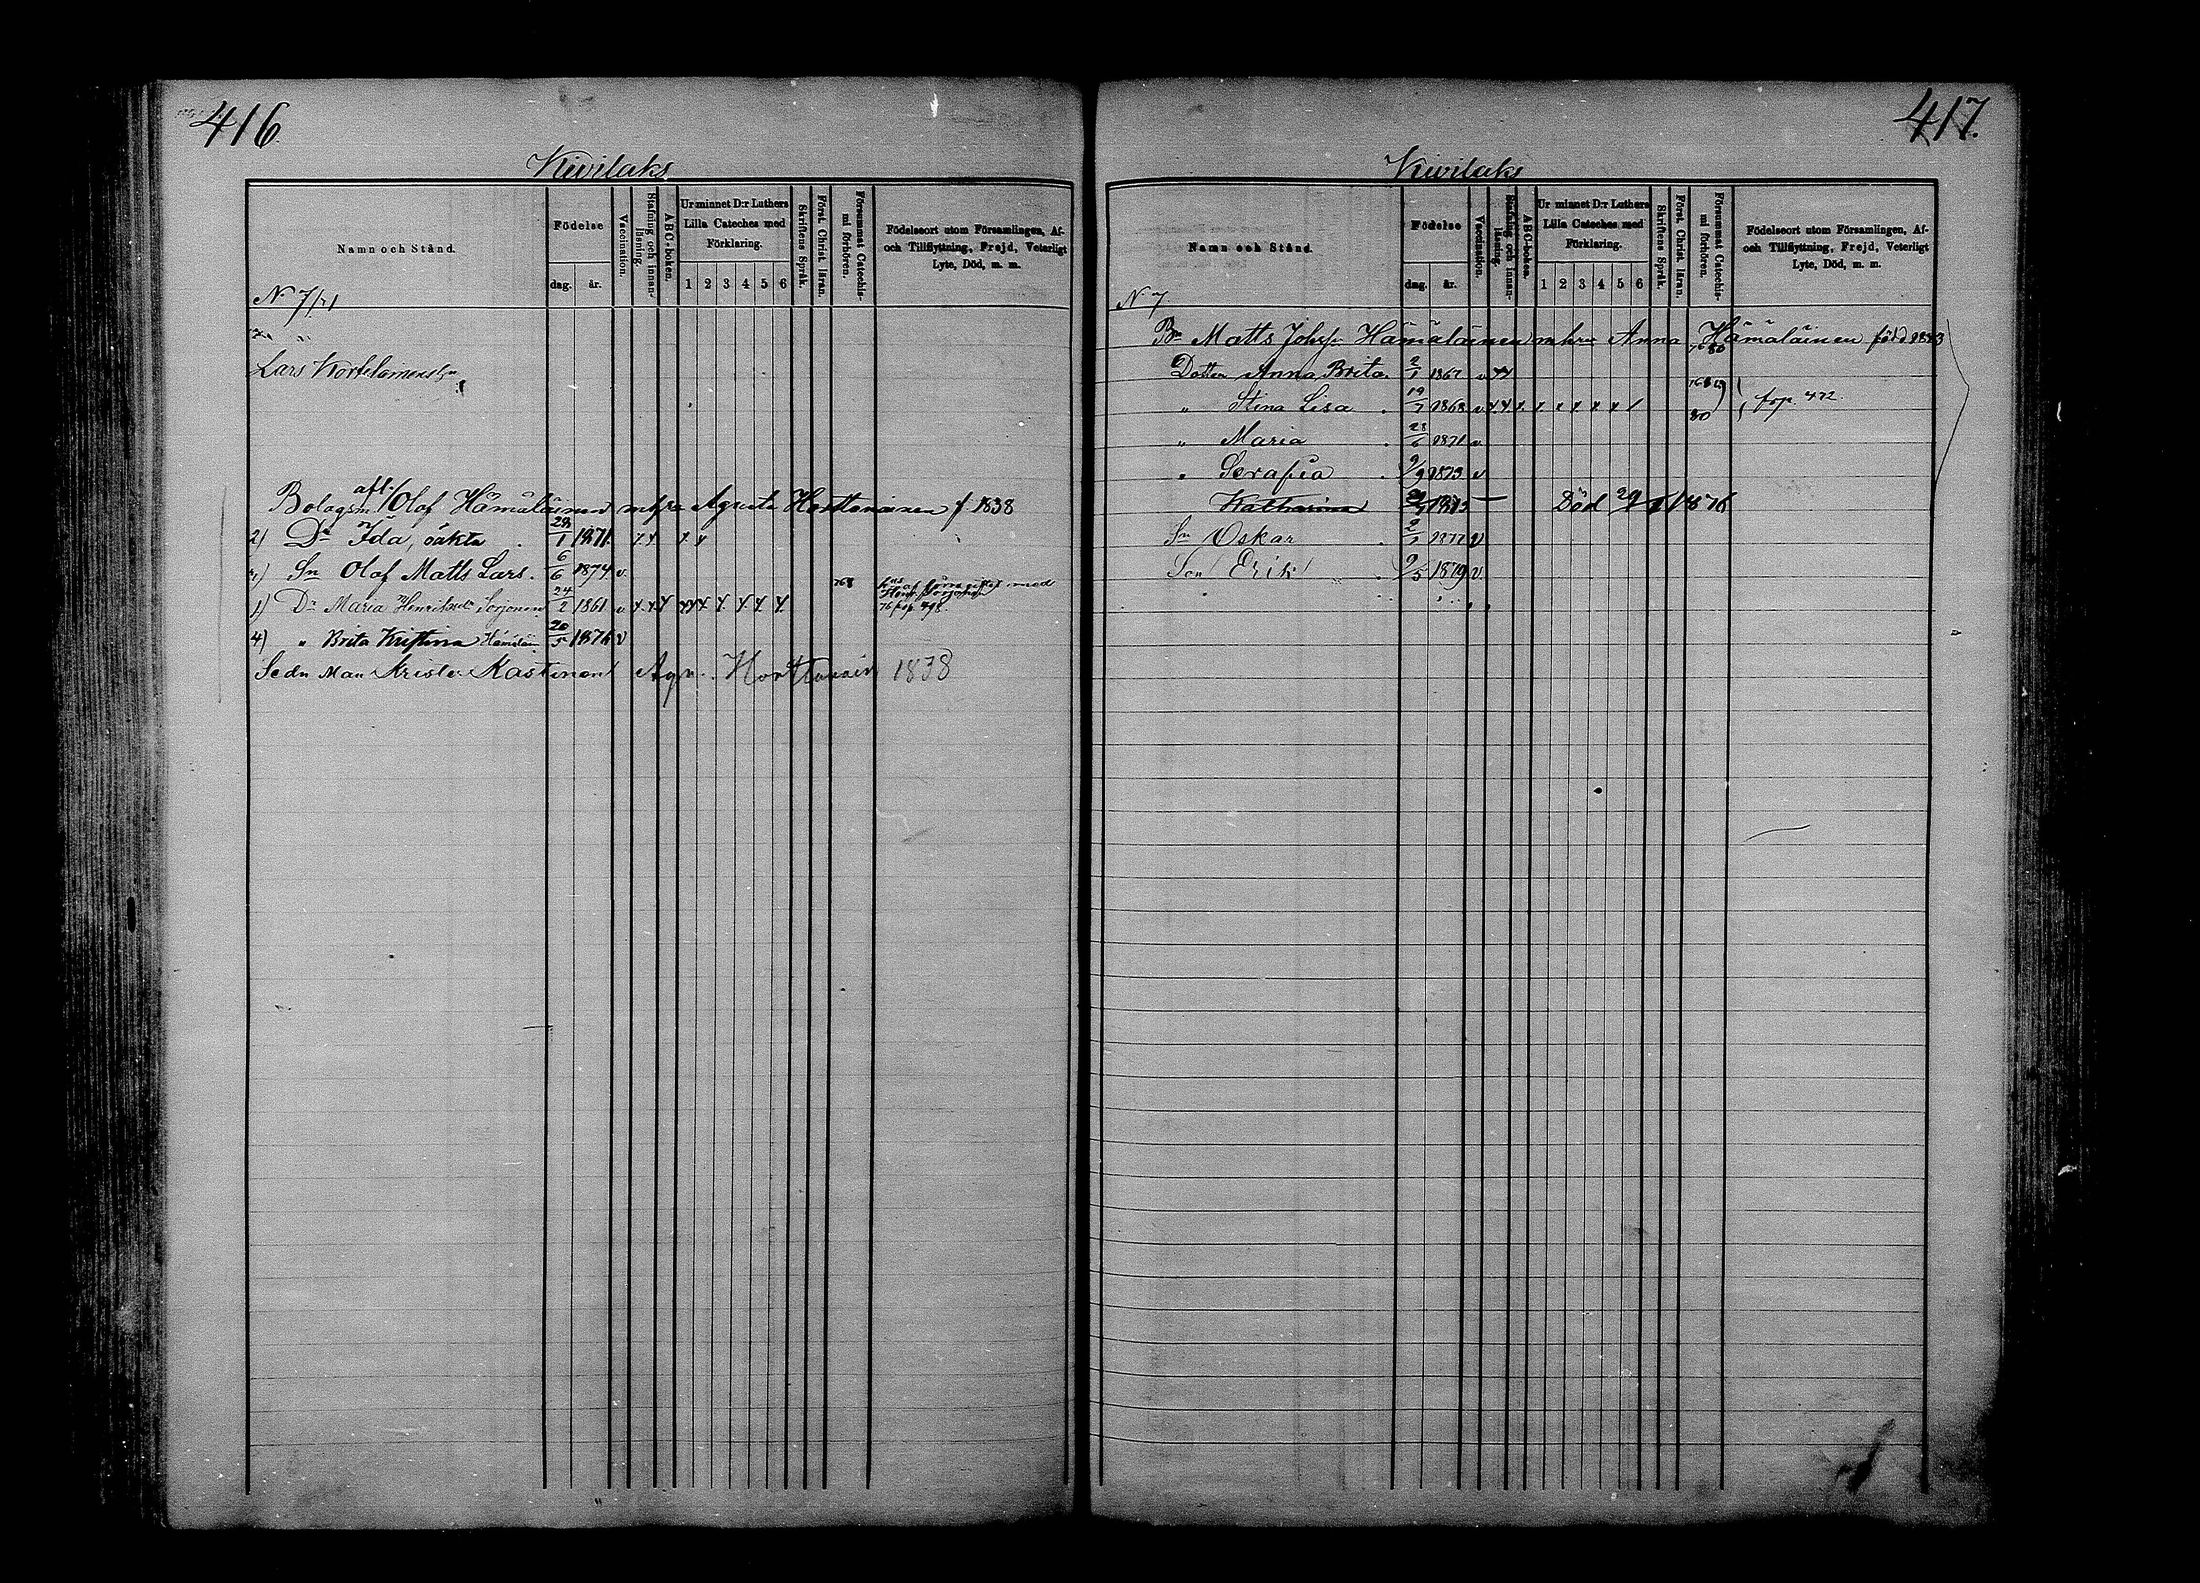 416.
Kivilaks
Namn och Stånd.
Födelse
dag.
år.
Vaccination.
Stafning och innan-
läsning.
ABC-boken.
Ur minnet D:r Luthers
Lilla Cateches med
Förklaring.
1 2 3 4 5 6
Skriftens Språk.
Först. Christ. läran.
Försummat Catechis-
mi förhören.
Födelseort utom Församlingen, Af-
och Tillflyttning, Frejd, Veterligt
Lyte, Död, m. m.
N 7
Lars
afl.
Bolagsm. Olof Hämäläinen Agneta Horttanainen f 1838
2) Dr Ida, oäkta 28/1 1871
Sn Olof Matts Lars. 6/6 1874 v.
1) Dr Maria Henriksdr Sorjonen 24/2 1861 v
76 pag. 498.
4) " Brita Kristina Hämäläin 20/5 1876 v
Sedn Man Krister Kastinen Agn. Horttanain 1838
417.
Kivilaks
Namn och Stånd.
Födelse
dag.
år.
Vaccination.
Stafning och innan-
läsning.
ABC-boken.
Ur minnet D:r Luthers
Lilla Cateches med
Förklaring.
1 2 3 4 5 6
Skriftens Språk.
Först. Christ. läran.
Försummat Catechis-
mi förhören.
Födelseort utom Församlingen, Af-
och Tillflyttning, Frejd, Veterligt
Lyte, Död, m. m.
N 7
Bn Matts Johsn Hämäläinen mhru Anna Hämäläinen född 1843
Dotter Anna Brita 2/1 1867 v 80
" Stina Lisa 19/7 1868 v 80 pag. 472.
" Maria 28/6 1871 v
" Serafia 9/9 1873 v
Katharina 1875 Död 29/1 1876
Sn Oskar 2/1 1877 v
Son Erik 9/5 1879 v